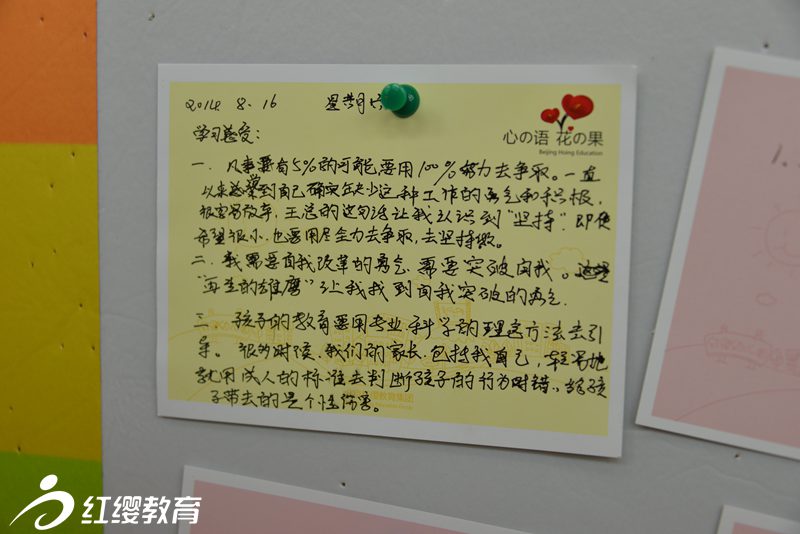 2014 8.16
心の语 花の果
Beijing Hoing Education
学习感受：
一. 凡事要有5%的可能,要用100%努力去争取。一直
以来感觉到自己确实缺少这种工作的勇气和积极,
很容易放弃,王总的这句话让我认识到"坚持".即使
希望很小,也要用尽全力去争取,去坚持做。
二.我需要自我改革的勇气,需要突破自我。这里
"再生的雄鹰"让我找到自我突破的勇气.
三. 孩子的教育要用专业.科学的理念方法去引
导。很多时候.我们的家长.包括我自己,轻易地
就用成人的标准去判断孩子的行为对错.给孩
子带去的是个性伤害。
教育集团
红缨教育
1.